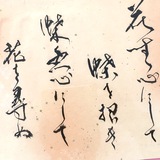 花無心にして
蝶を招き
蝶無心にして
花を尋ぬ